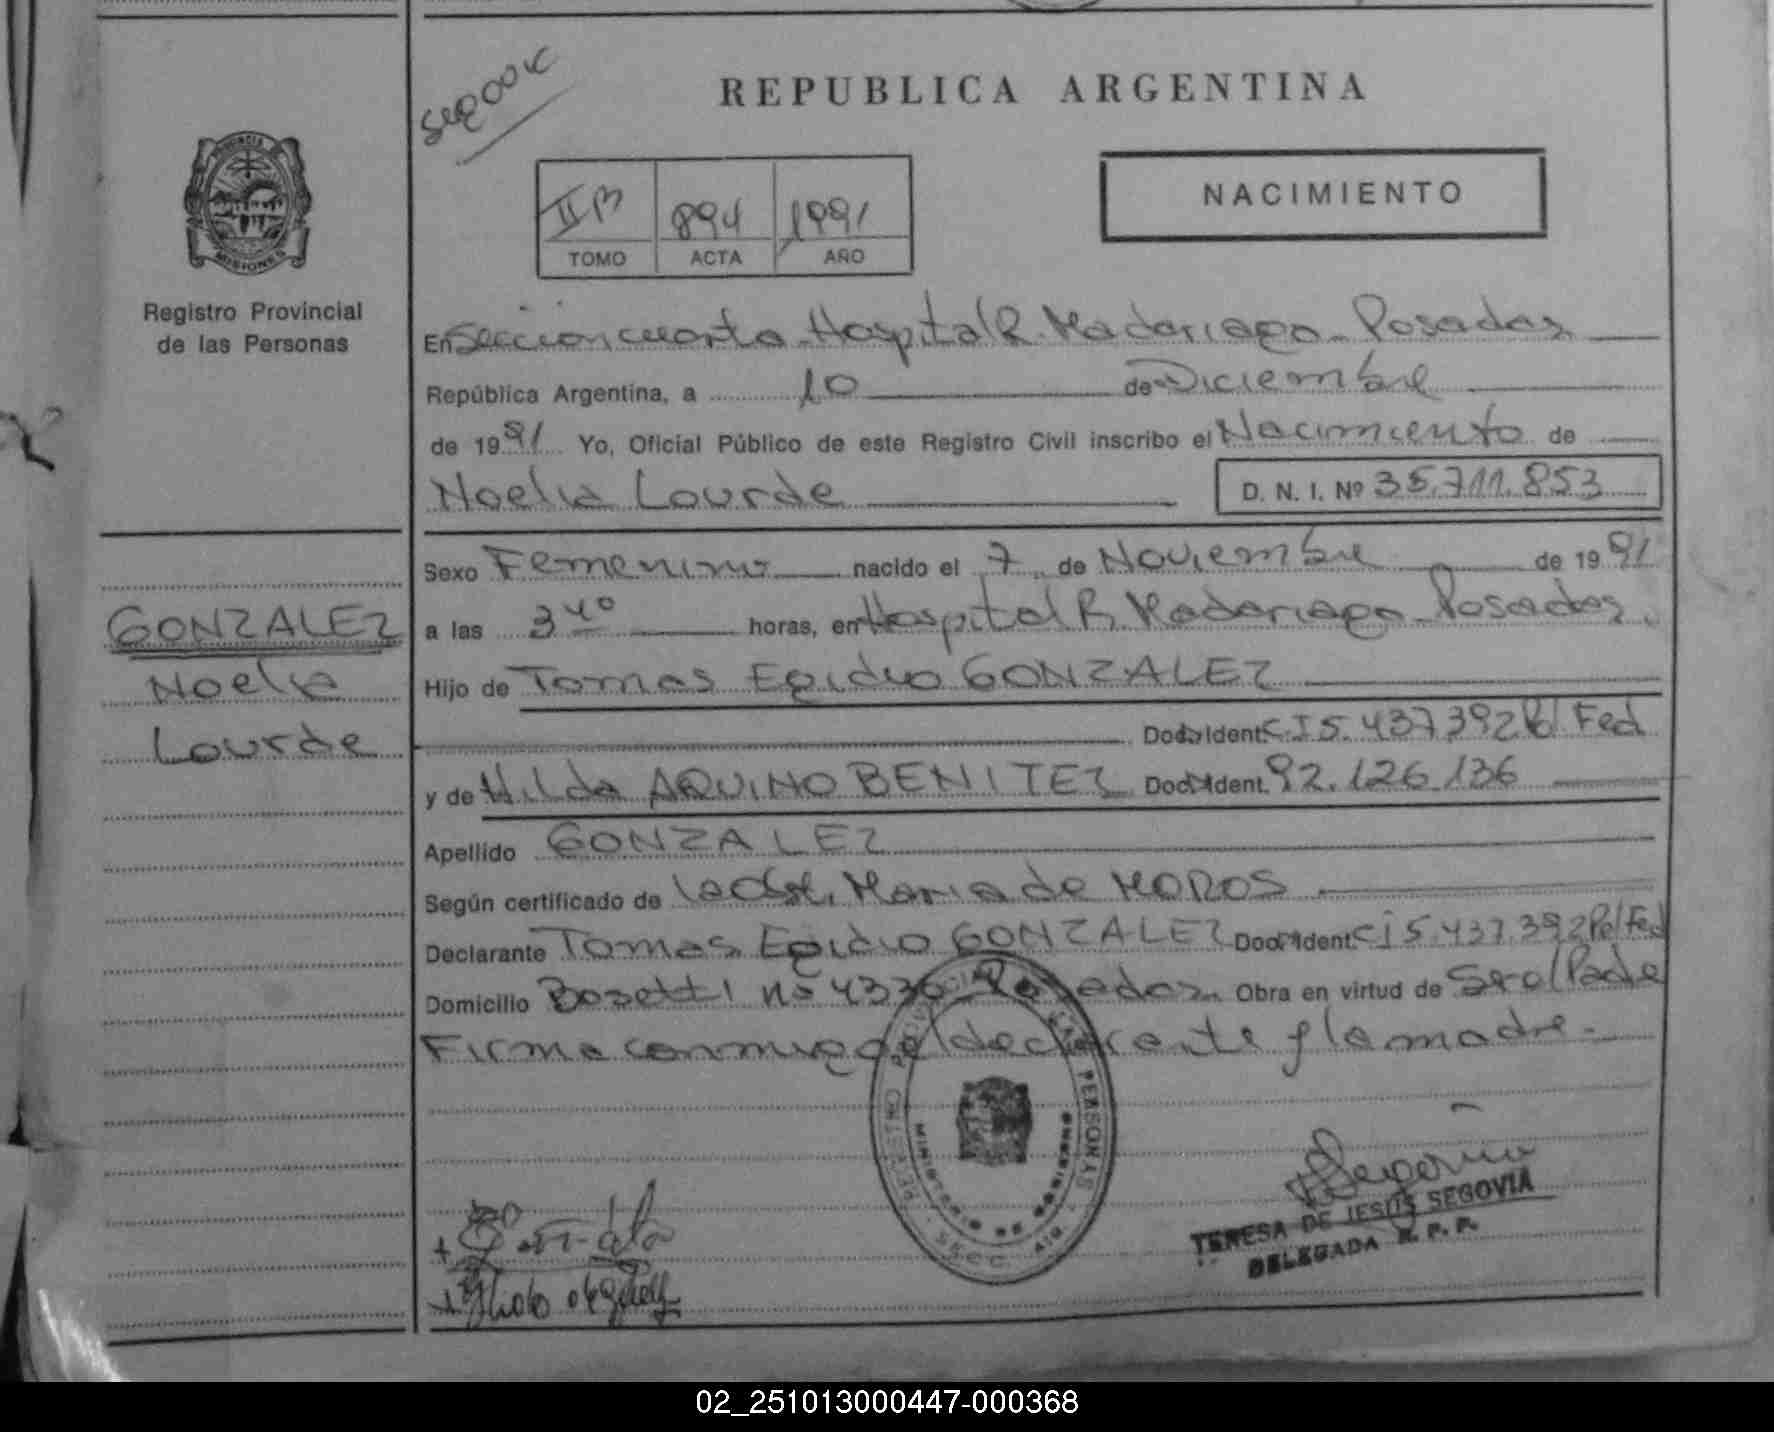 REPUBLICA ARGENTINA
II B 894 1991
TOMO ACTA AÑO
NACIMIENTO
MISIONES
Registro Provincial
de las Personas
En Sección cuarta - Hospital R. Madariaga - Posadas
República Argentina, a 10 de Diciembre
de 1991 Yo, Oficial Público de este Registro Civil inscribo el Nacimiento de
Noelia Lourde D. N. I. Nº 35.711.853
Sexo Femenino nacido el 7 de Noviembre de 1991
a las 3 40 horas, en Hospital R. Madariaga - Posadas.
Hijo de Tomas Egidio GONZALEZ
Doc. Ident. C I 5.437.392 Pol Fed
y de Hilda AQUINO BENITEZ Doc. Ident. 92.126.136
Apellido GONZALEZ
Según certificado de la Obst. Maria de MOROS
Declarante Tomas Egidio GONZALEZ Doc. Ident. C I 5.437.392 Pol Fed
Domicilio Bosetti nº 4330 Posadas. Obra en virtud de Ser el Padre
Firma conmigo el declarante y la madre.-
GONZALEZ
Noelia
Lourde
TERESA DE JESUS SEGOVIA
DELEGADA R. P. P.
02_251013000447-000368